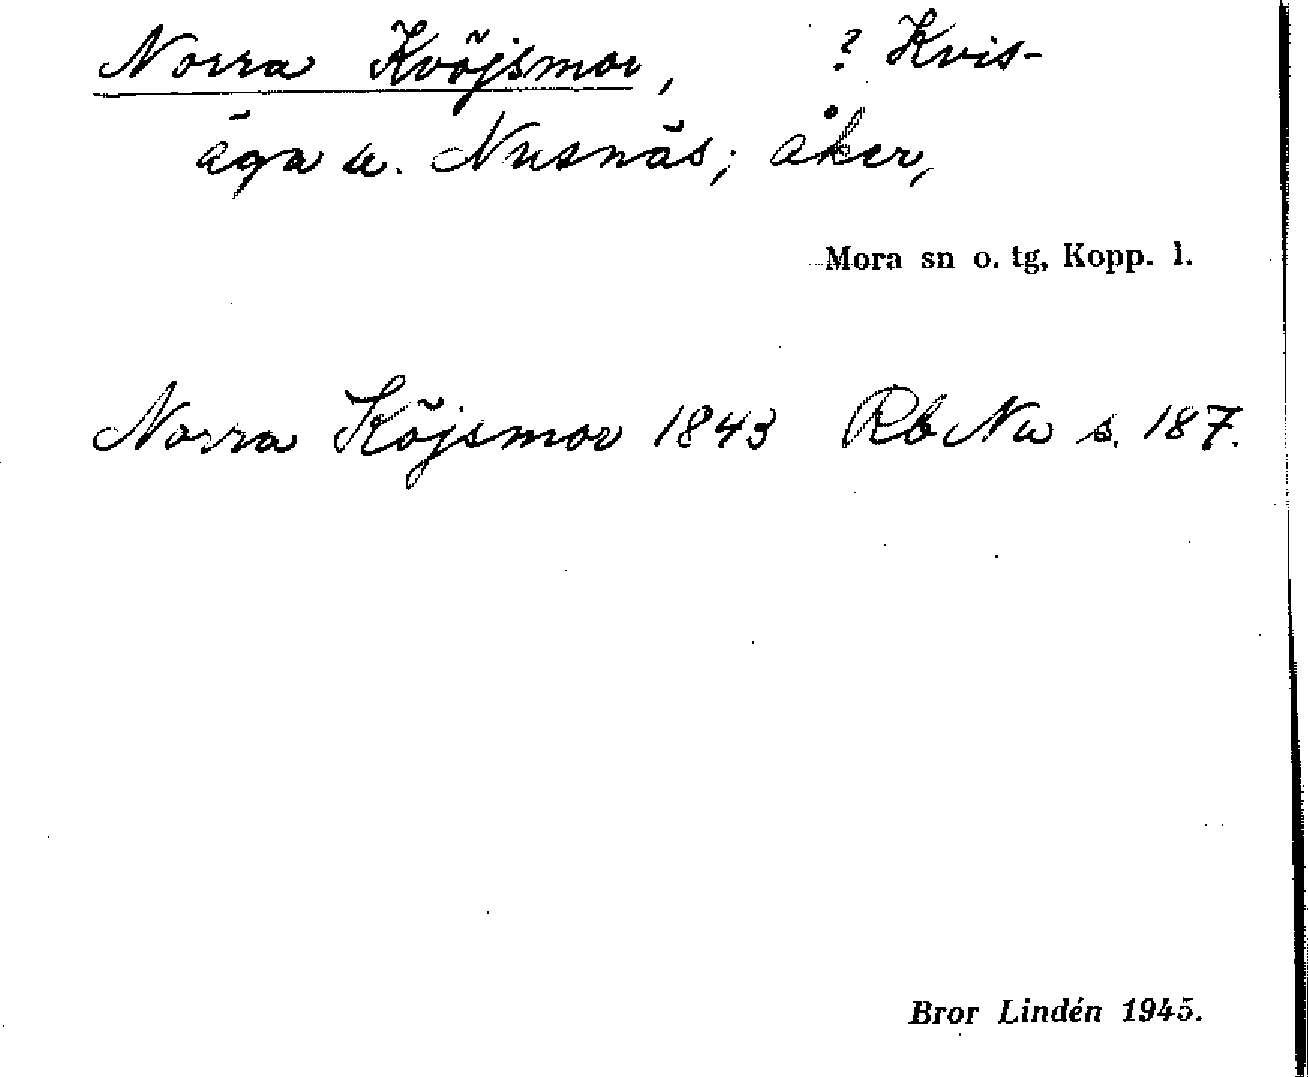 Norra Kvöjsmor, ? Kvis-
äga u. Nusnäs; åker,
Mora sn o. tg, Kopp. l.
Norra Köjsmor 1843 Rb Nu s. 187.
Bror Lindén 1945.